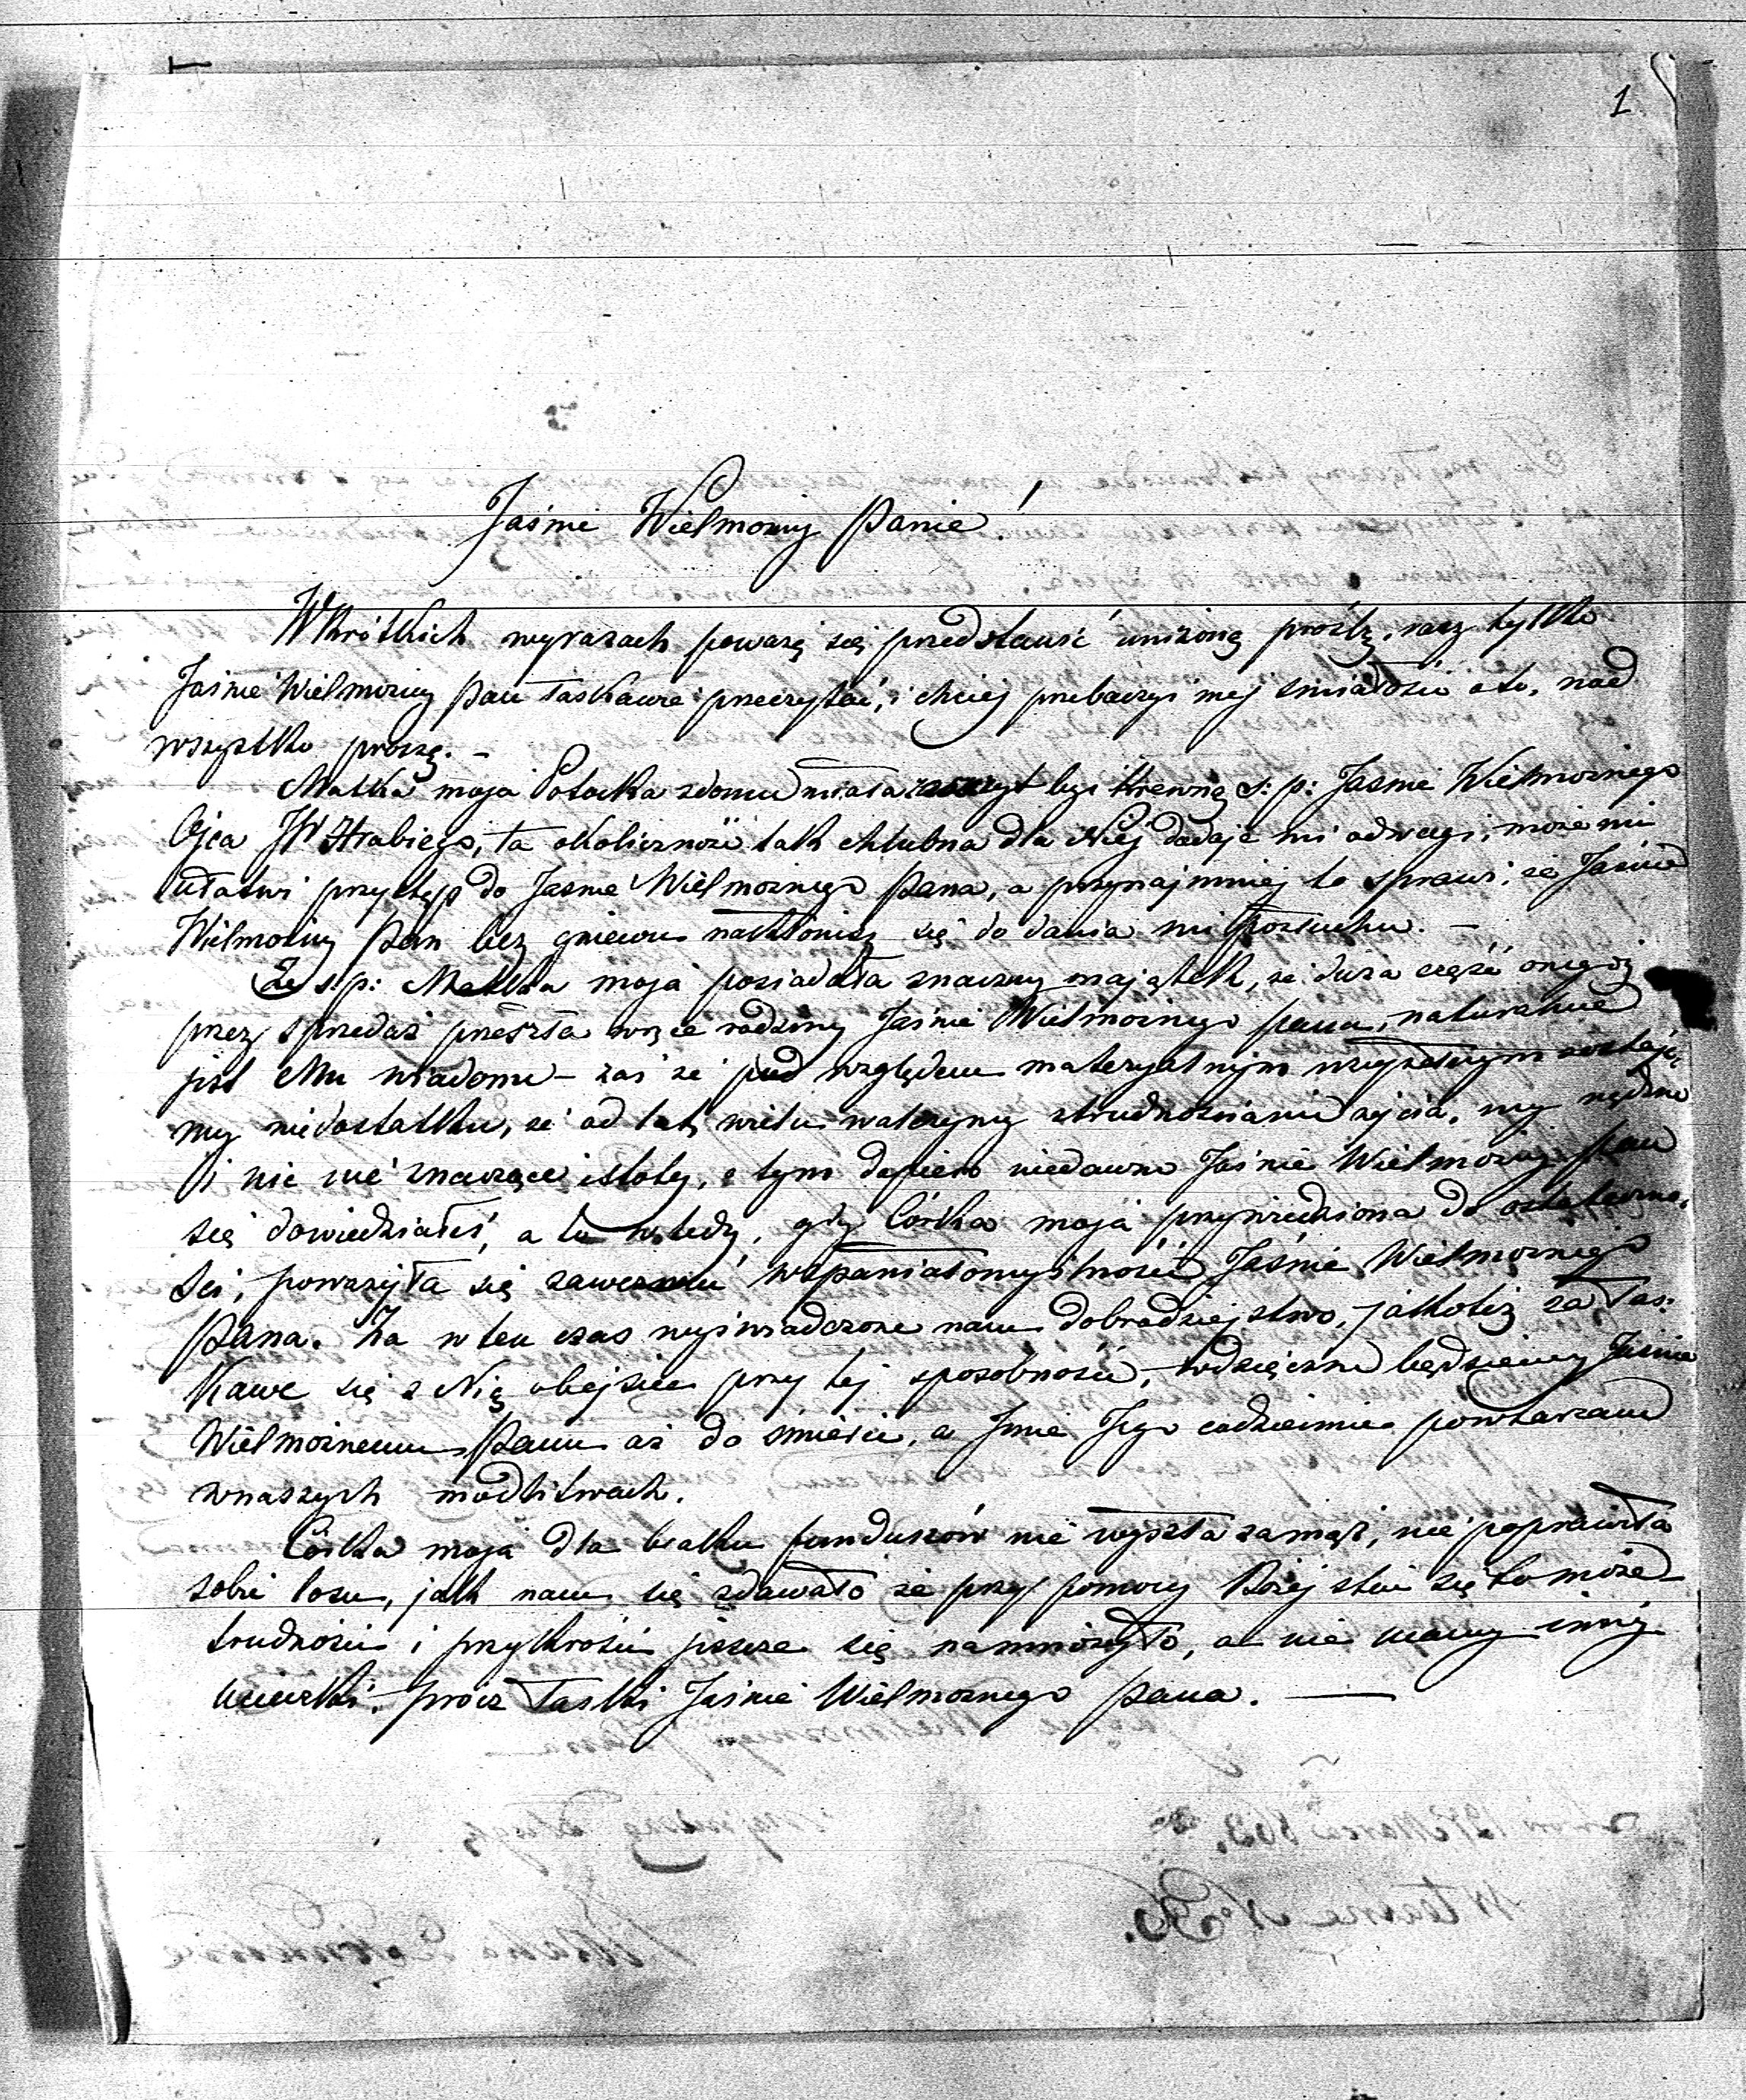 1
Jaśnie Wielmożny Panie!
W krótkich wyrazach poważę się przedstawić uniżoną prośbę, racz tylko
Jaśnie Wielmożny Pan łaskawie przeczytać, i chciej przebaczyć mej śmiałości oto, nad
wszystko proszę. –
Matka moja Potocka z domu miała zaszczyt być krewną ś: p: Jaśnie Wielmożnego
Ojca JW Hrabiego, ta okoliczność tak chlubna dla Niej dodaje mi odwagi, może mi
ułatwi przystęp do Jaśnie Wielmożnego Pana, a przynajmniej to sprawi, że Jaśnie
Wielmożny Pan bez gniewu nakłonisz się do dania mi posłuchu. –
Że ś.p: Matka moja posiadała znaczny majątek, że duża część onegoż
przez sprzedaż przeszła w ręce rodziny Jaśnie Wielmożnego pana, naturalnie
jest Mu wiadome – zaś że pod względem materyalnym
my niedostatku, że od lat wielu walczymy z trudnościami życia, my nędzne
i nic nie znaczące istoty, o tym dopiero niedawno Jaśnie Wielmożny Pan
się dowiedziałeś, a to wtedy, gdy Córka moja przywiedziona do ostateczno-
ści, poważyła się zawezwać wspaniałomyślność Jaśnie Wielmożnego
Pana. Za w ten czas wyświadczone nam dobrodziejstwo, jakoteż za łas-
kawe się z Nią obejście przy tej sposobności, wdzięczne będziemy Jaśnie
Wielmożnemu Panu aż do śmierci, a Imie Jego codziennie powtarzam
w naszych modlitwach.
Córka moja dla braku funduszów nie wyszła zamąż, nie poprawiła
sobie losu, jak nam się zdawało że przy pomocy Bożej stać się to może –
trudności i przykrości jeszcze się namnożyło, a nie mamy innej
ucieczki, prócz łaski Jaśnie Wielmożnego Pana. —